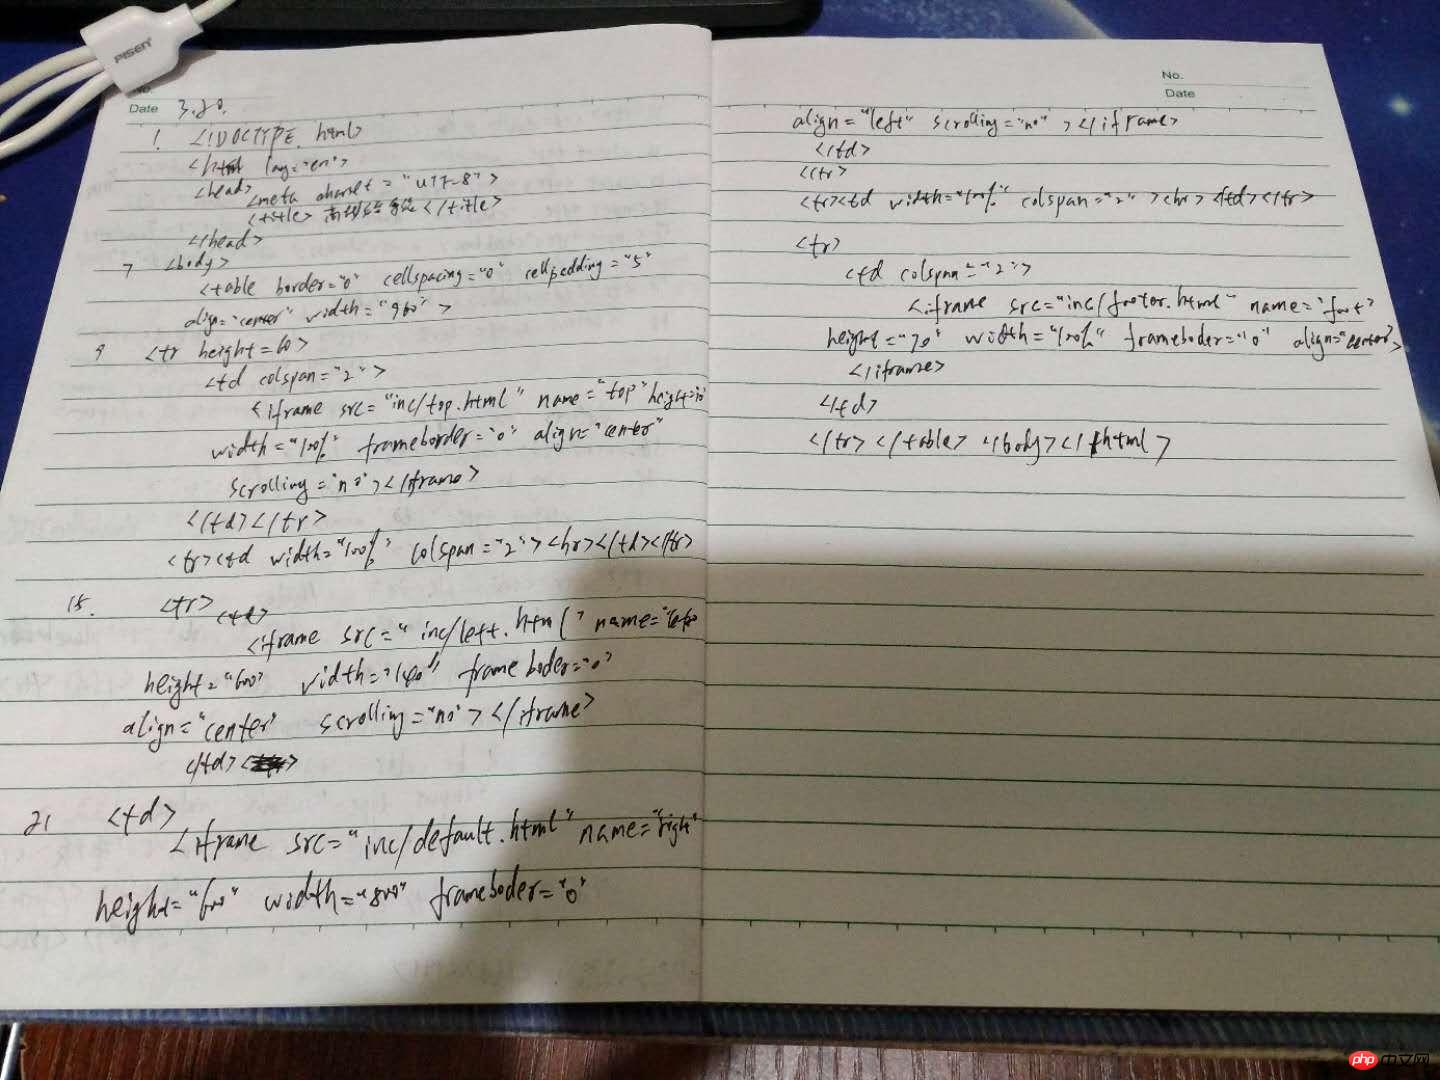 PISEN
No.
Date 3.20.
1. <!DOCTYPE html>
<html lang="en">
<head>
<meta charset="UTF-8">
<title> </title>
</head>
7 <body>
<table border="0" cellspacing="0" cellpadding="5"
align="center" width="960" >
9 <tr height=60>
<td colspan="2">
<iframe src="inc/top.html" name="top" height=
width="100%" frameborder="0" align="center"
scrolling="no"></iframe>
</td></tr>
<tr><td width="100%" colspan="2"><hr></td></tr>
15. <tr> <td>
<iframe src="inc/left.html" name="left"
height="600" width="140" frameboder="0"
align="center" scrolling="no"></iframe>
</td>
21 <td>
<iframe src="inc/default.html" name="right"
height="600" width="800" frameboder="0"
No.
Date
align="left" scrolling="no"></iframe>
</td>
</tr>
<tr><td width="100%" colspan="2"><hr></td></tr>
<tr>
<td colspan="2">
<iframe src="inc/footer.html" name="foot"
height="70" width="100%" frameboder="0" align="center">
</iframe>
</td>
</tr></table></body></html>
php中文网